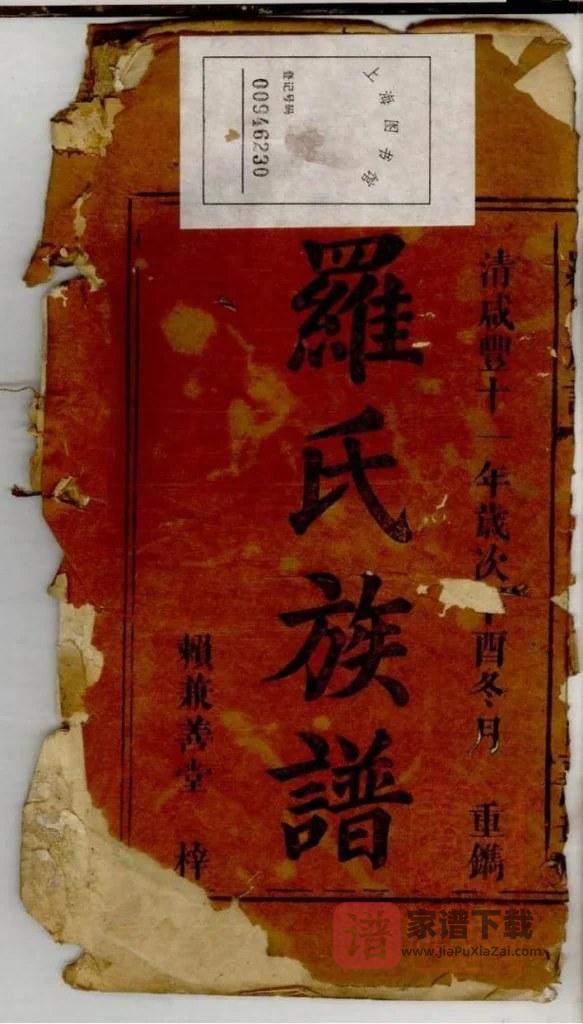 上海图书馆
登记号码
00946230
清咸豐十一年歲次 酉冬月 重鐫
羅氏族譜
賴兼善堂 梓
谱
家谱下载
www.JiaPuXiaZai.com